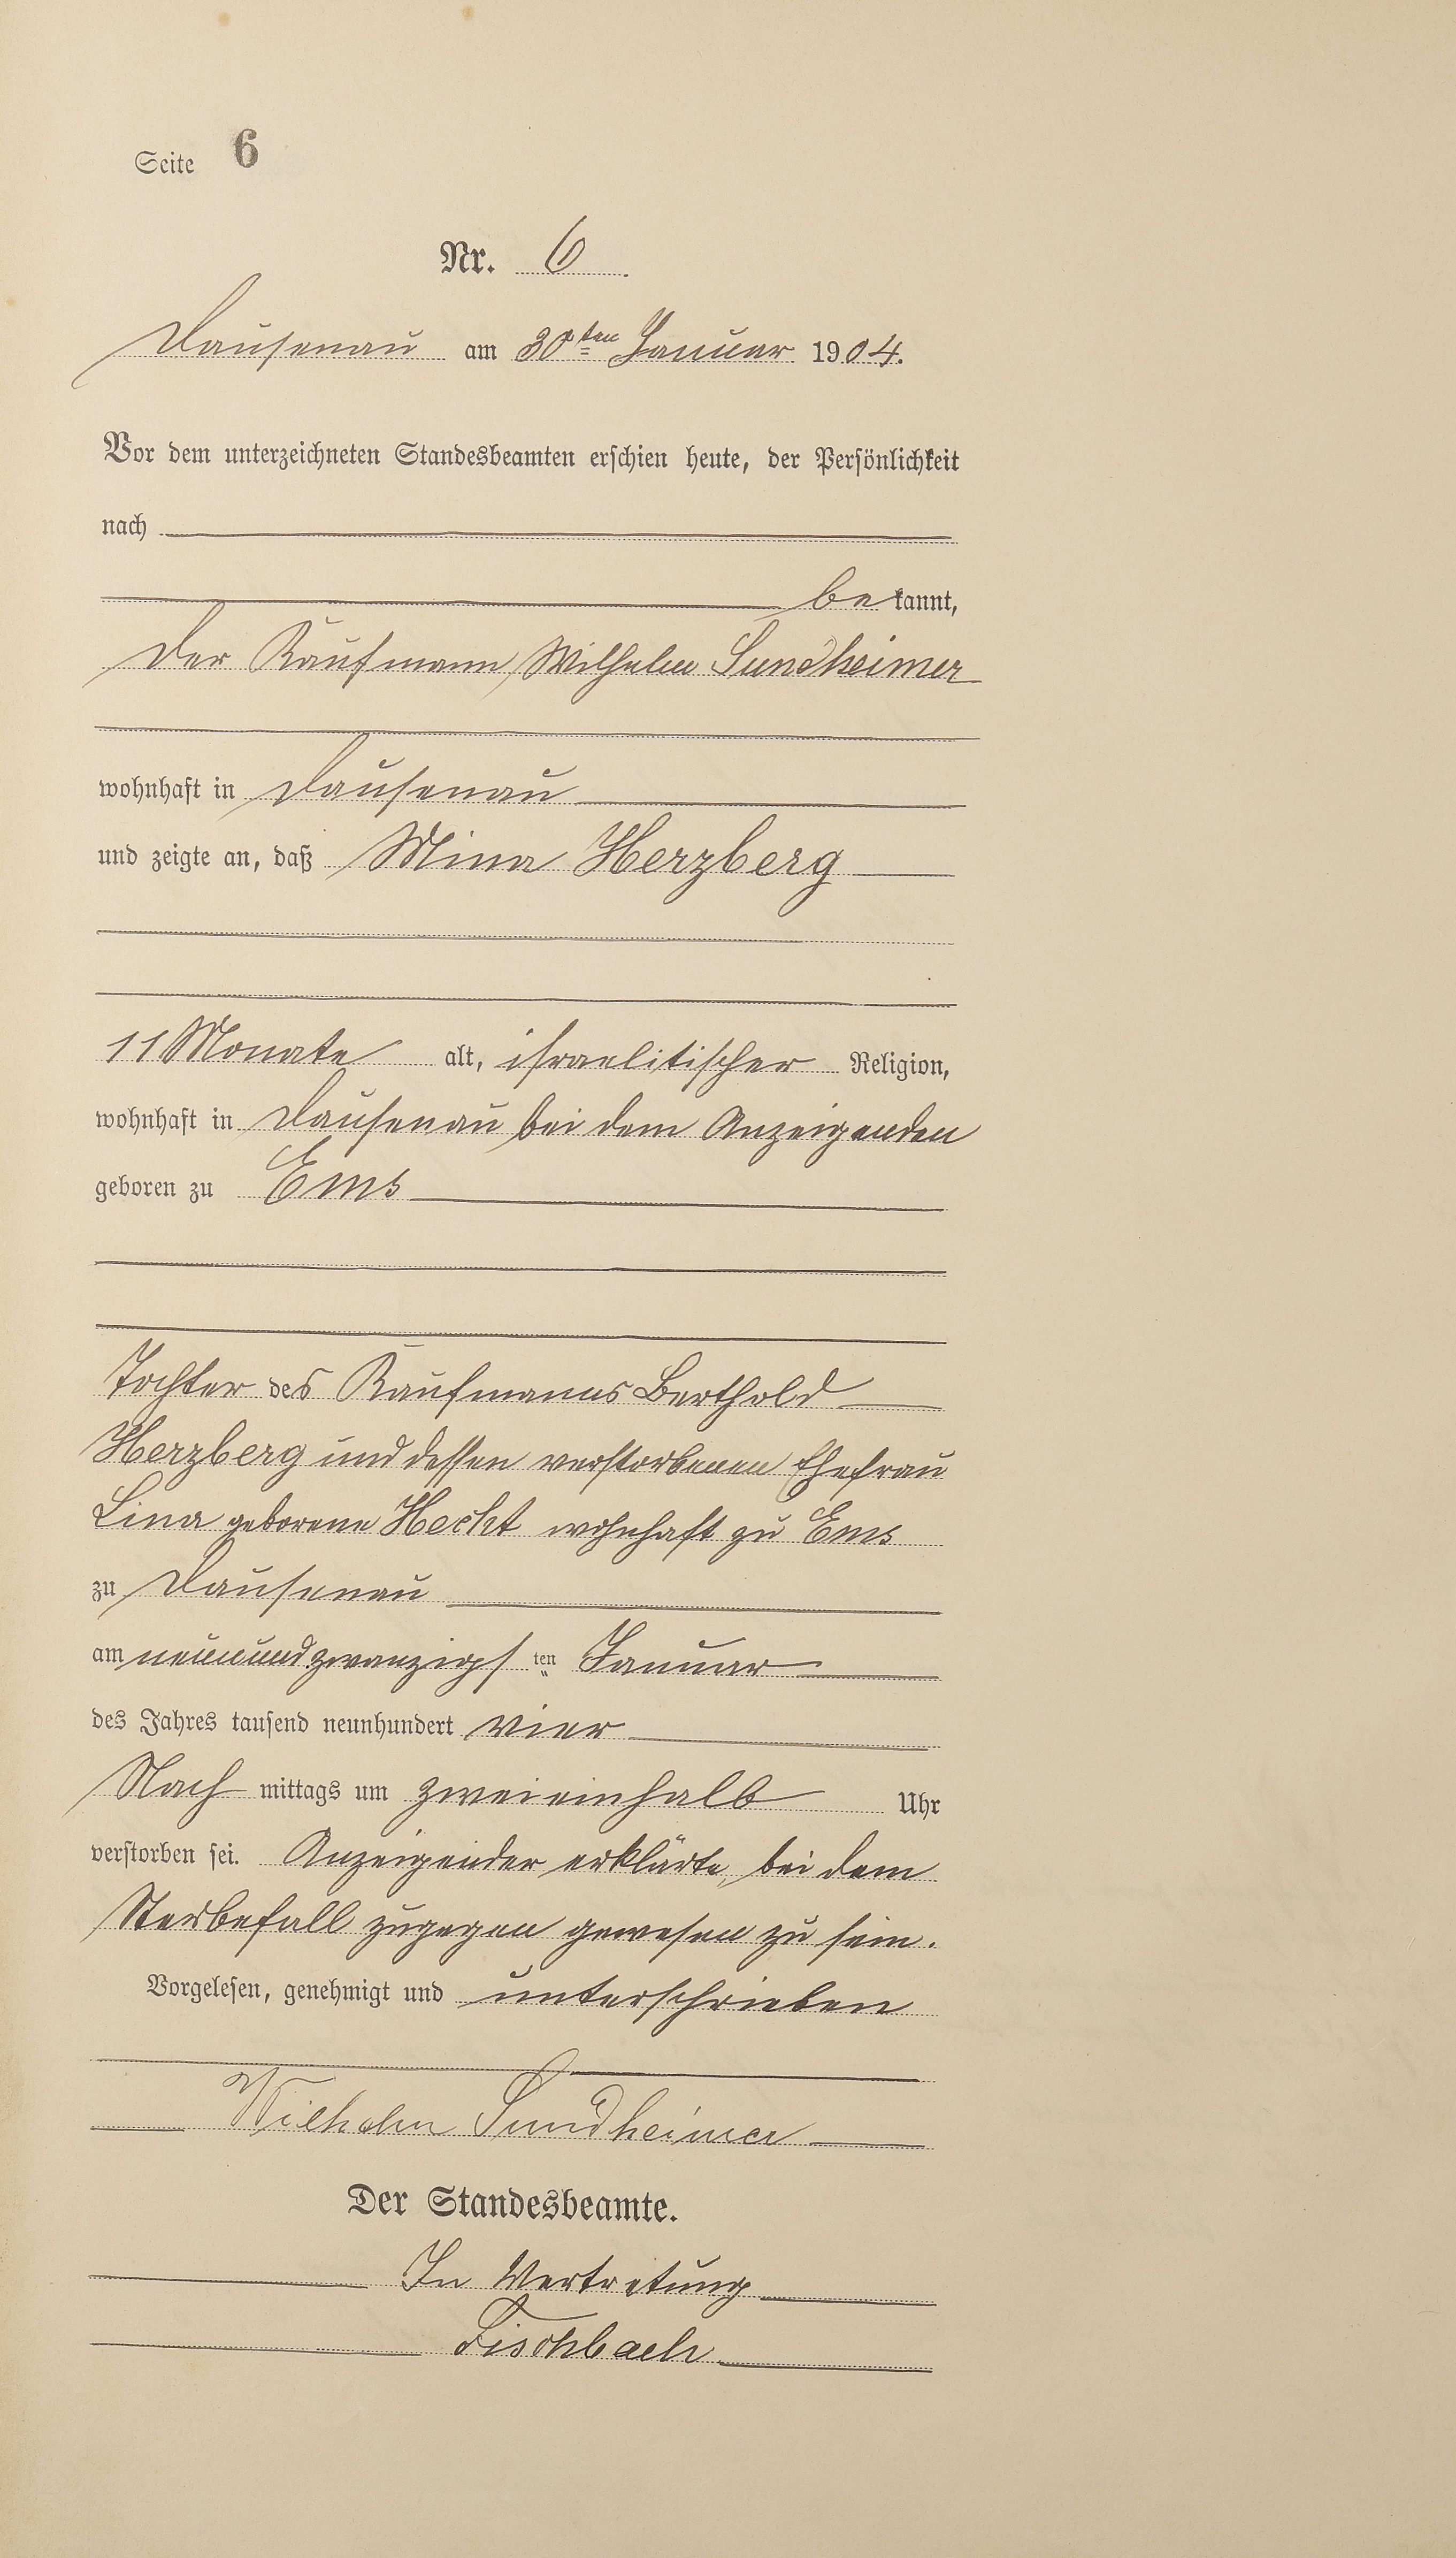 Seite 6
Nr. 6
Dausenau am 30ten Januar 1904.
Vor dem unterzeichneten Standesbeamten erschien heute, der Persönlichkeit
nach
bekannt,
der Kaufmann Wilhelm Sundheimer
wohnhaft in Dausenau
und zeigte an, daß Mina Herzberg
11 Monate alt, israelitischer Religion,
wohnhaft in Dausenau bei dem Anzeigenden
geboren zu Ems
Tochter des Kaufmanns Berthold
Herzberg und dessen verstorbenen Ehefrau
Lina geborene Hecht wohnhaft zu Ems
zu Dausenau
am neunundzwanzigsten Januar
des Jahres tausend neunhundert vier
Nachmittags um zweieinhalb Uhr
verstorben sei. Anzeigender erklärte, bei dem
Sterbefall zugegen gewesen zu sein.
Vorgelesen, genehmigt und unterschrieben
Wilhelm Sundheimer
Der Standesbeamte.
In Vertretung
Fischbach